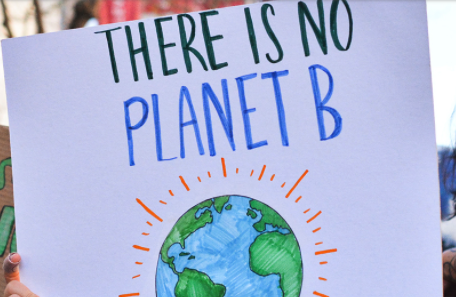 THERE IS NO
PLANET B